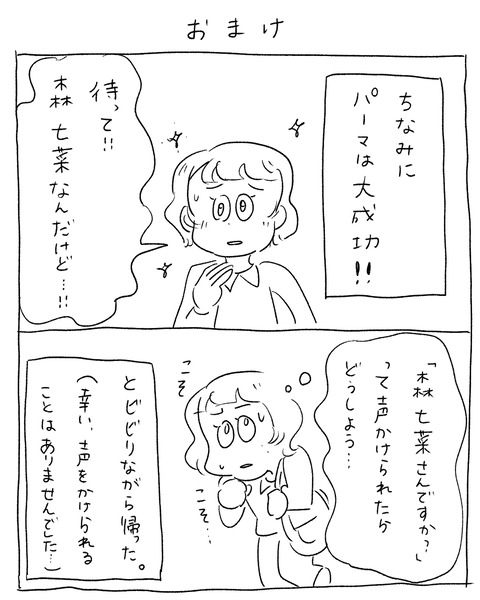 おまけ
ちなみに
パーマは大成功!!
待って!!
森七菜なんだけど…!!
「森七菜さんですか?」
って声かけられたら
どうしよう…
こそ
こそ…
とビビりながら帰った。
(幸い、声をかけられる
ことはありませんでした…)